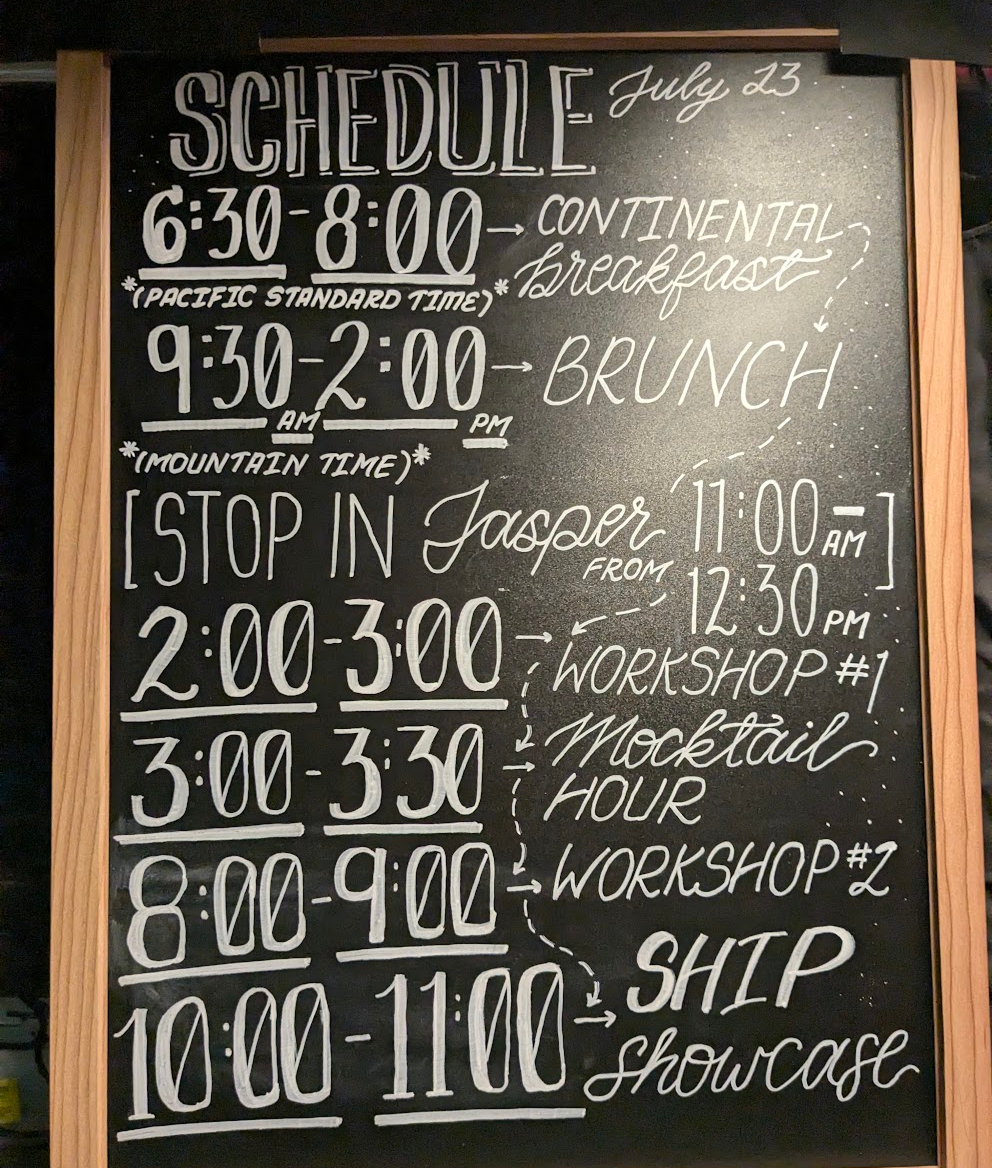 SCHEDULE July 23
6:30-8:00 → CONTINENTAL
breakfast
*(PACIFIC STANDARD TIME)*
9:30 AM - 2:00 PM → BRUNCH
*(MOUNTAIN TIME)*
[STOP IN Jasper FROM 11:00 AM - 12:30 PM]
2:00-3:00 → WORKSHOP #1
3:00-3:30 → Mocktail
HOUR
8:00-9:00 → WORKSHOP #2
10:00-11:00 → SHIP
showcase